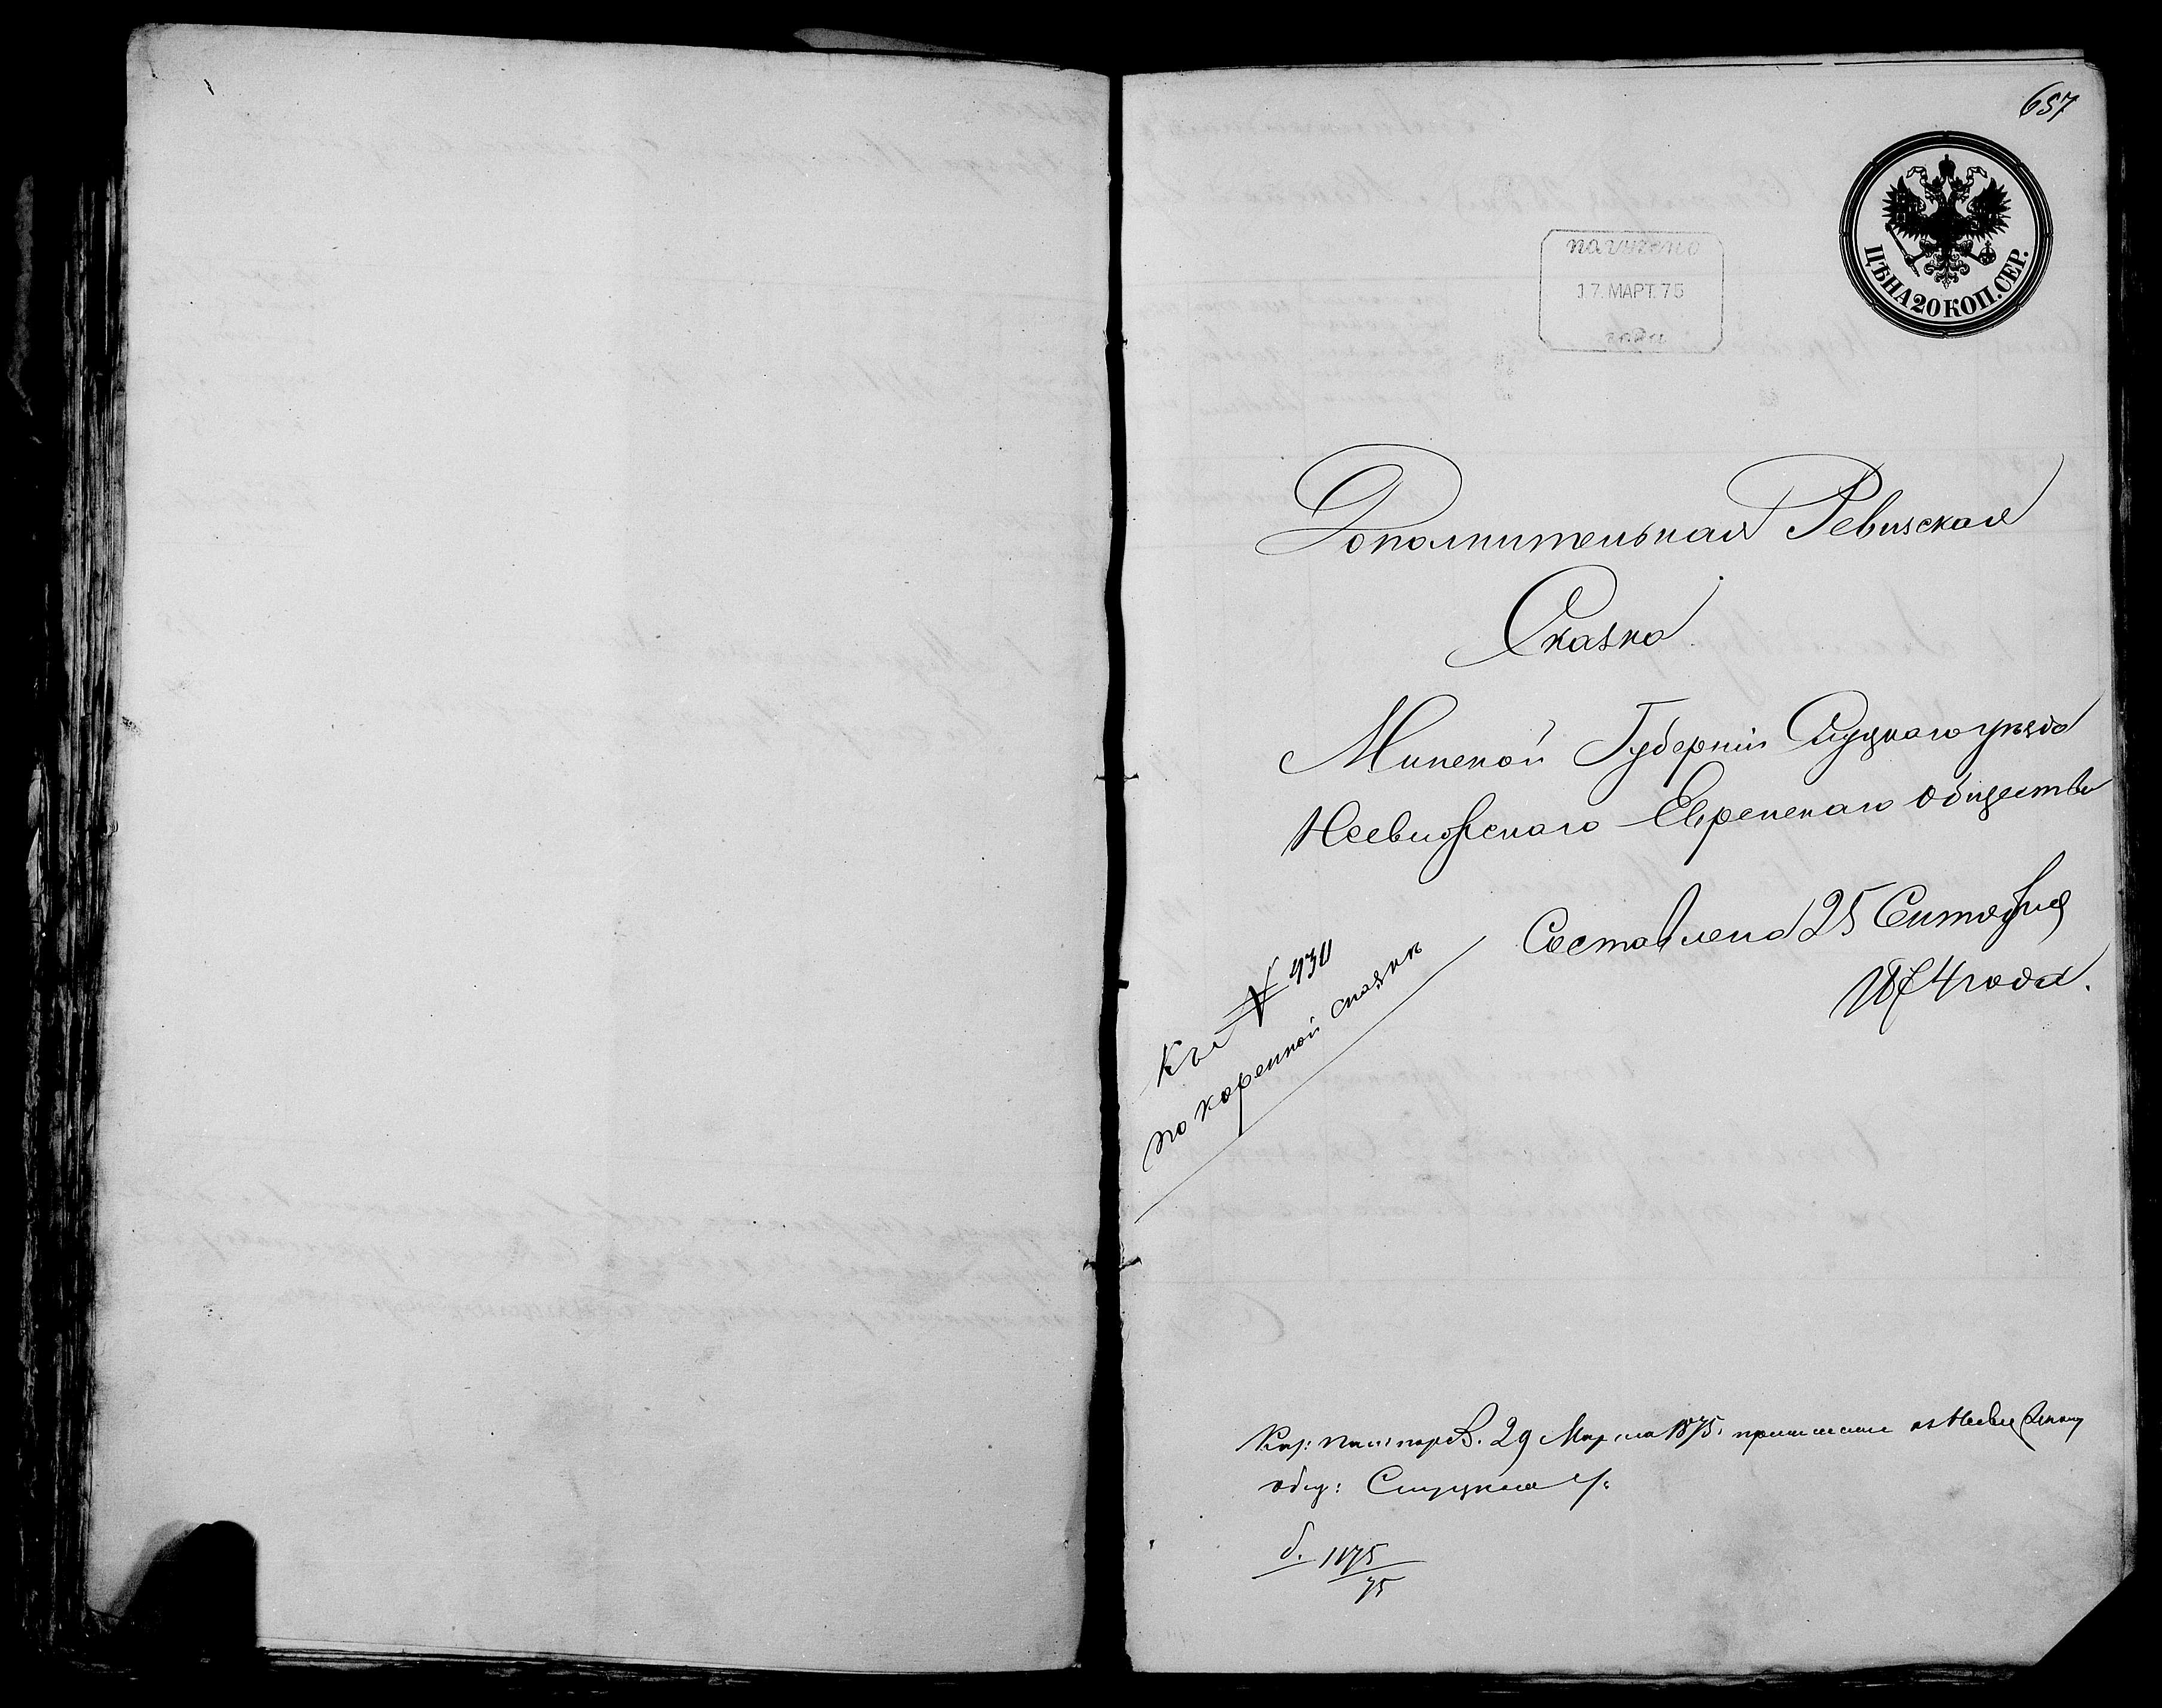 657
ЦѢНА 20 КОП. СЕР.
получено
17. МАРТ. 75
года
Дополнительная Ревизская
Сказка
Минской Губерніи Слуцкаго уѣзда
Несвижскаго Еврейскаго общества
Составлена 25 Сентября
1874 года.
Къ № 430
по коренной сказкѣ
29 Марта 1875.
общ: Слуцкаго у:
1875
75